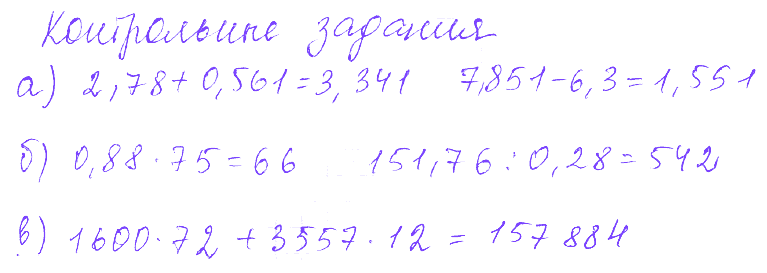 Контрольные задания
а) 2,78+0,561=3,341 7,851-6,3=1,551
б) 0,88·75=66 151,76:0,28=542
в) 1600·72+3557·12=157 884